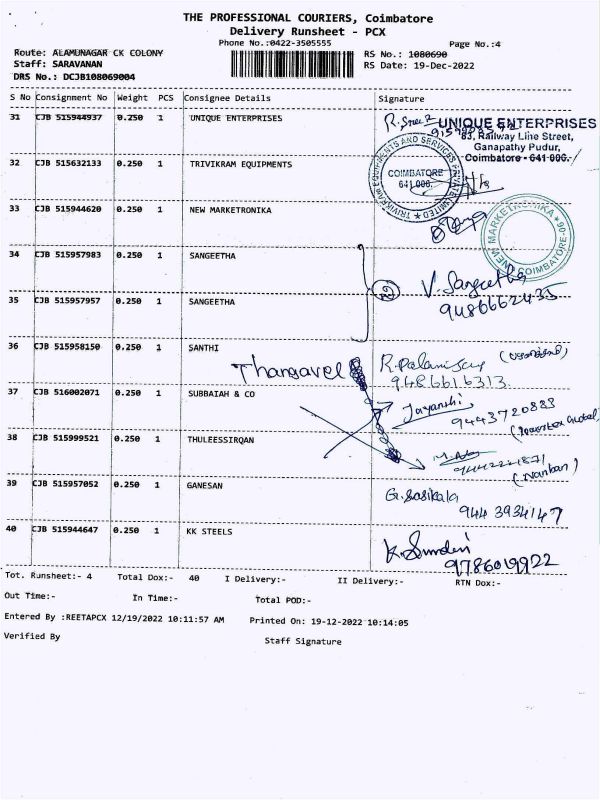 THE PROFESSIONAL COURIERS, Coimbatore
Delivery Runsheet - PCX
Phone No.:0422-3505555
Page No.:4
Route: ALAMUNAGAR CK COLONY
RS No.: 1080690
Staff: SARAVANAN
RS Date: 19-Dec-2022
DRS No.: DCJB108069004
S No Consignment No Weight PCS Consignee Details Signature
31 CJB 515944937 0.250 1 UNIQUE ENTERPRISES
UNIQUE ENTERPRISES
83, Railway Line Street,
Ganapathy Pudur,
Coimbatore - 641 006.
32 CJB 515632133 0.250 1 TRIVIKRAM EQUIPMENTS
TRIVIKRAM EQUIPMENTS AND SERVICES PRIVATE LIMITED
COIMBATORE
641 006.
33 CJB 515944620 0.250 1 NEW MARKETRONIKA
NEW MARKETRONIKA COIMBATORE-06
34 CJB 515957983 0.250 1 SANGEETHA
V. Sangeetha
9486662435
35 CJB 515957957 0.250 1 SANGEETHA
36 CJB 515958150 0.250 1 SANTHI
Thangavel
9486616313
37 CJB 516002071 0.250 1 SUBBAIAH & CO
Jayanthi
9443720833
38 CJB 515999521 0.250 1 THULEESSIRQAN
39 CJB 515957052 0.250 1 GANESAN
G. Sasikala
944 3934147
40 CJB 515944647 0.250 1 KK STEELS
9786019922
Tot. Runsheet:- 4 Total Dox:- 40 I Delivery:- II Delivery:- RTN Dox:-
Out Time:- In Time:- Total POD:-
Entered By :REETAPCX 12/19/2022 10:11:57 AM Printed On: 19-12-2022 10:14:05
Verified By Staff Signature